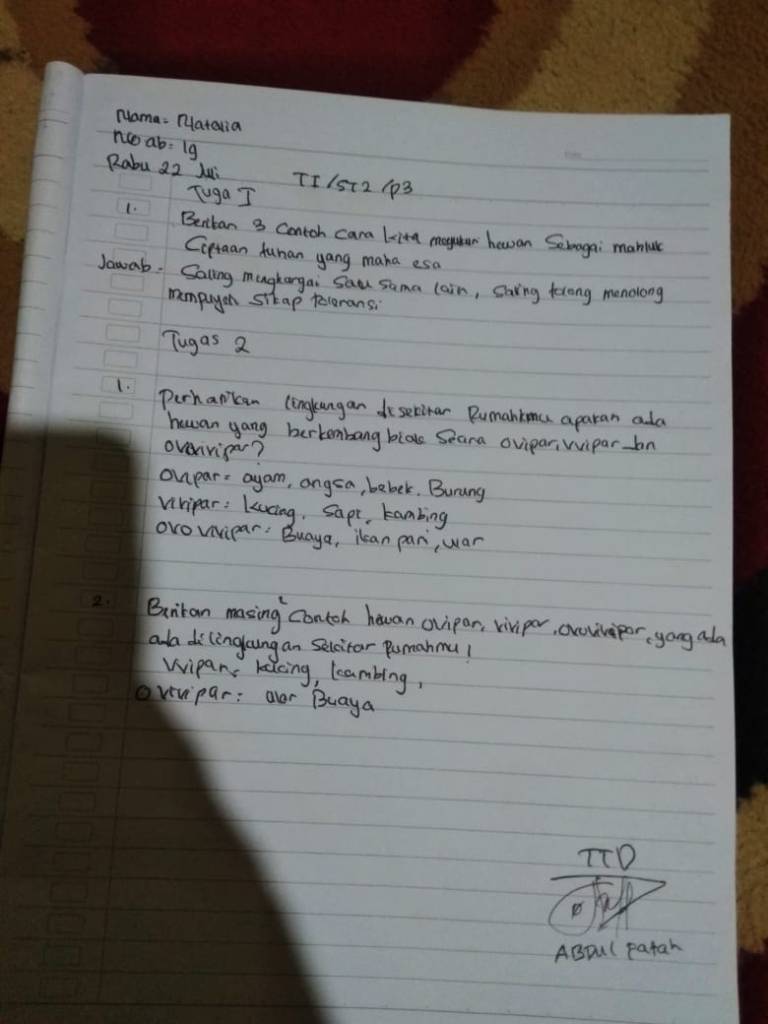 Nama = Natalia
No ab = 19
Rabu 22 Juli
TI/ST2/P3
Tuga I
1. Berikan 3 Contoh cara kita hewan Sebagai mahluk
Ciptaan tuhan yang maha esa
Jawab = Saling mengkargai satu sama lain, saling tolong menolong
mempuyeh sikap toleransi
Tugas 2
1. perhatikan lingkungan disekitar Rumahkmu apakan ada
hewan yang berkembang biak secara ovipar, vvipar dn
ovovivipar?
ovipar = ayam, angsa, bebek. Burung
vivipar : kucing, sapi, kambing
ovovivipar : Buaya, ikan pari, uar
2. Berikan masing² Contoh hewan ovipar, vivipar, ovovivipar, yang ada
ada dilingkungan sekitar Rumahmu!
vvipar = kucing, kambing,
ovivipar : Buaya
TTD
ABDUL Patah